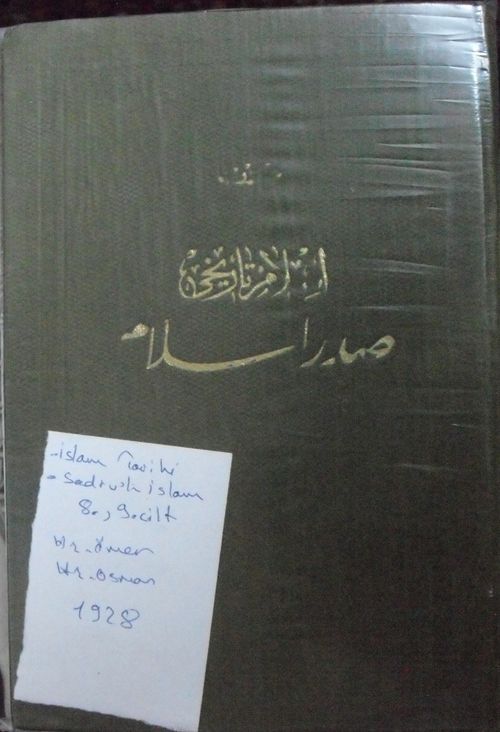 اسلام تاريخى
صدر اسلام
-islam Tarihi
- Sadrush islam
8. , 9. cilt
Hz. Ömer
Hz. Osman
1928